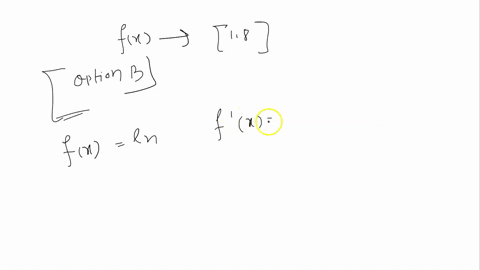 f(x) → [1,8]
[option B]
f(x) = ln f'(x) =